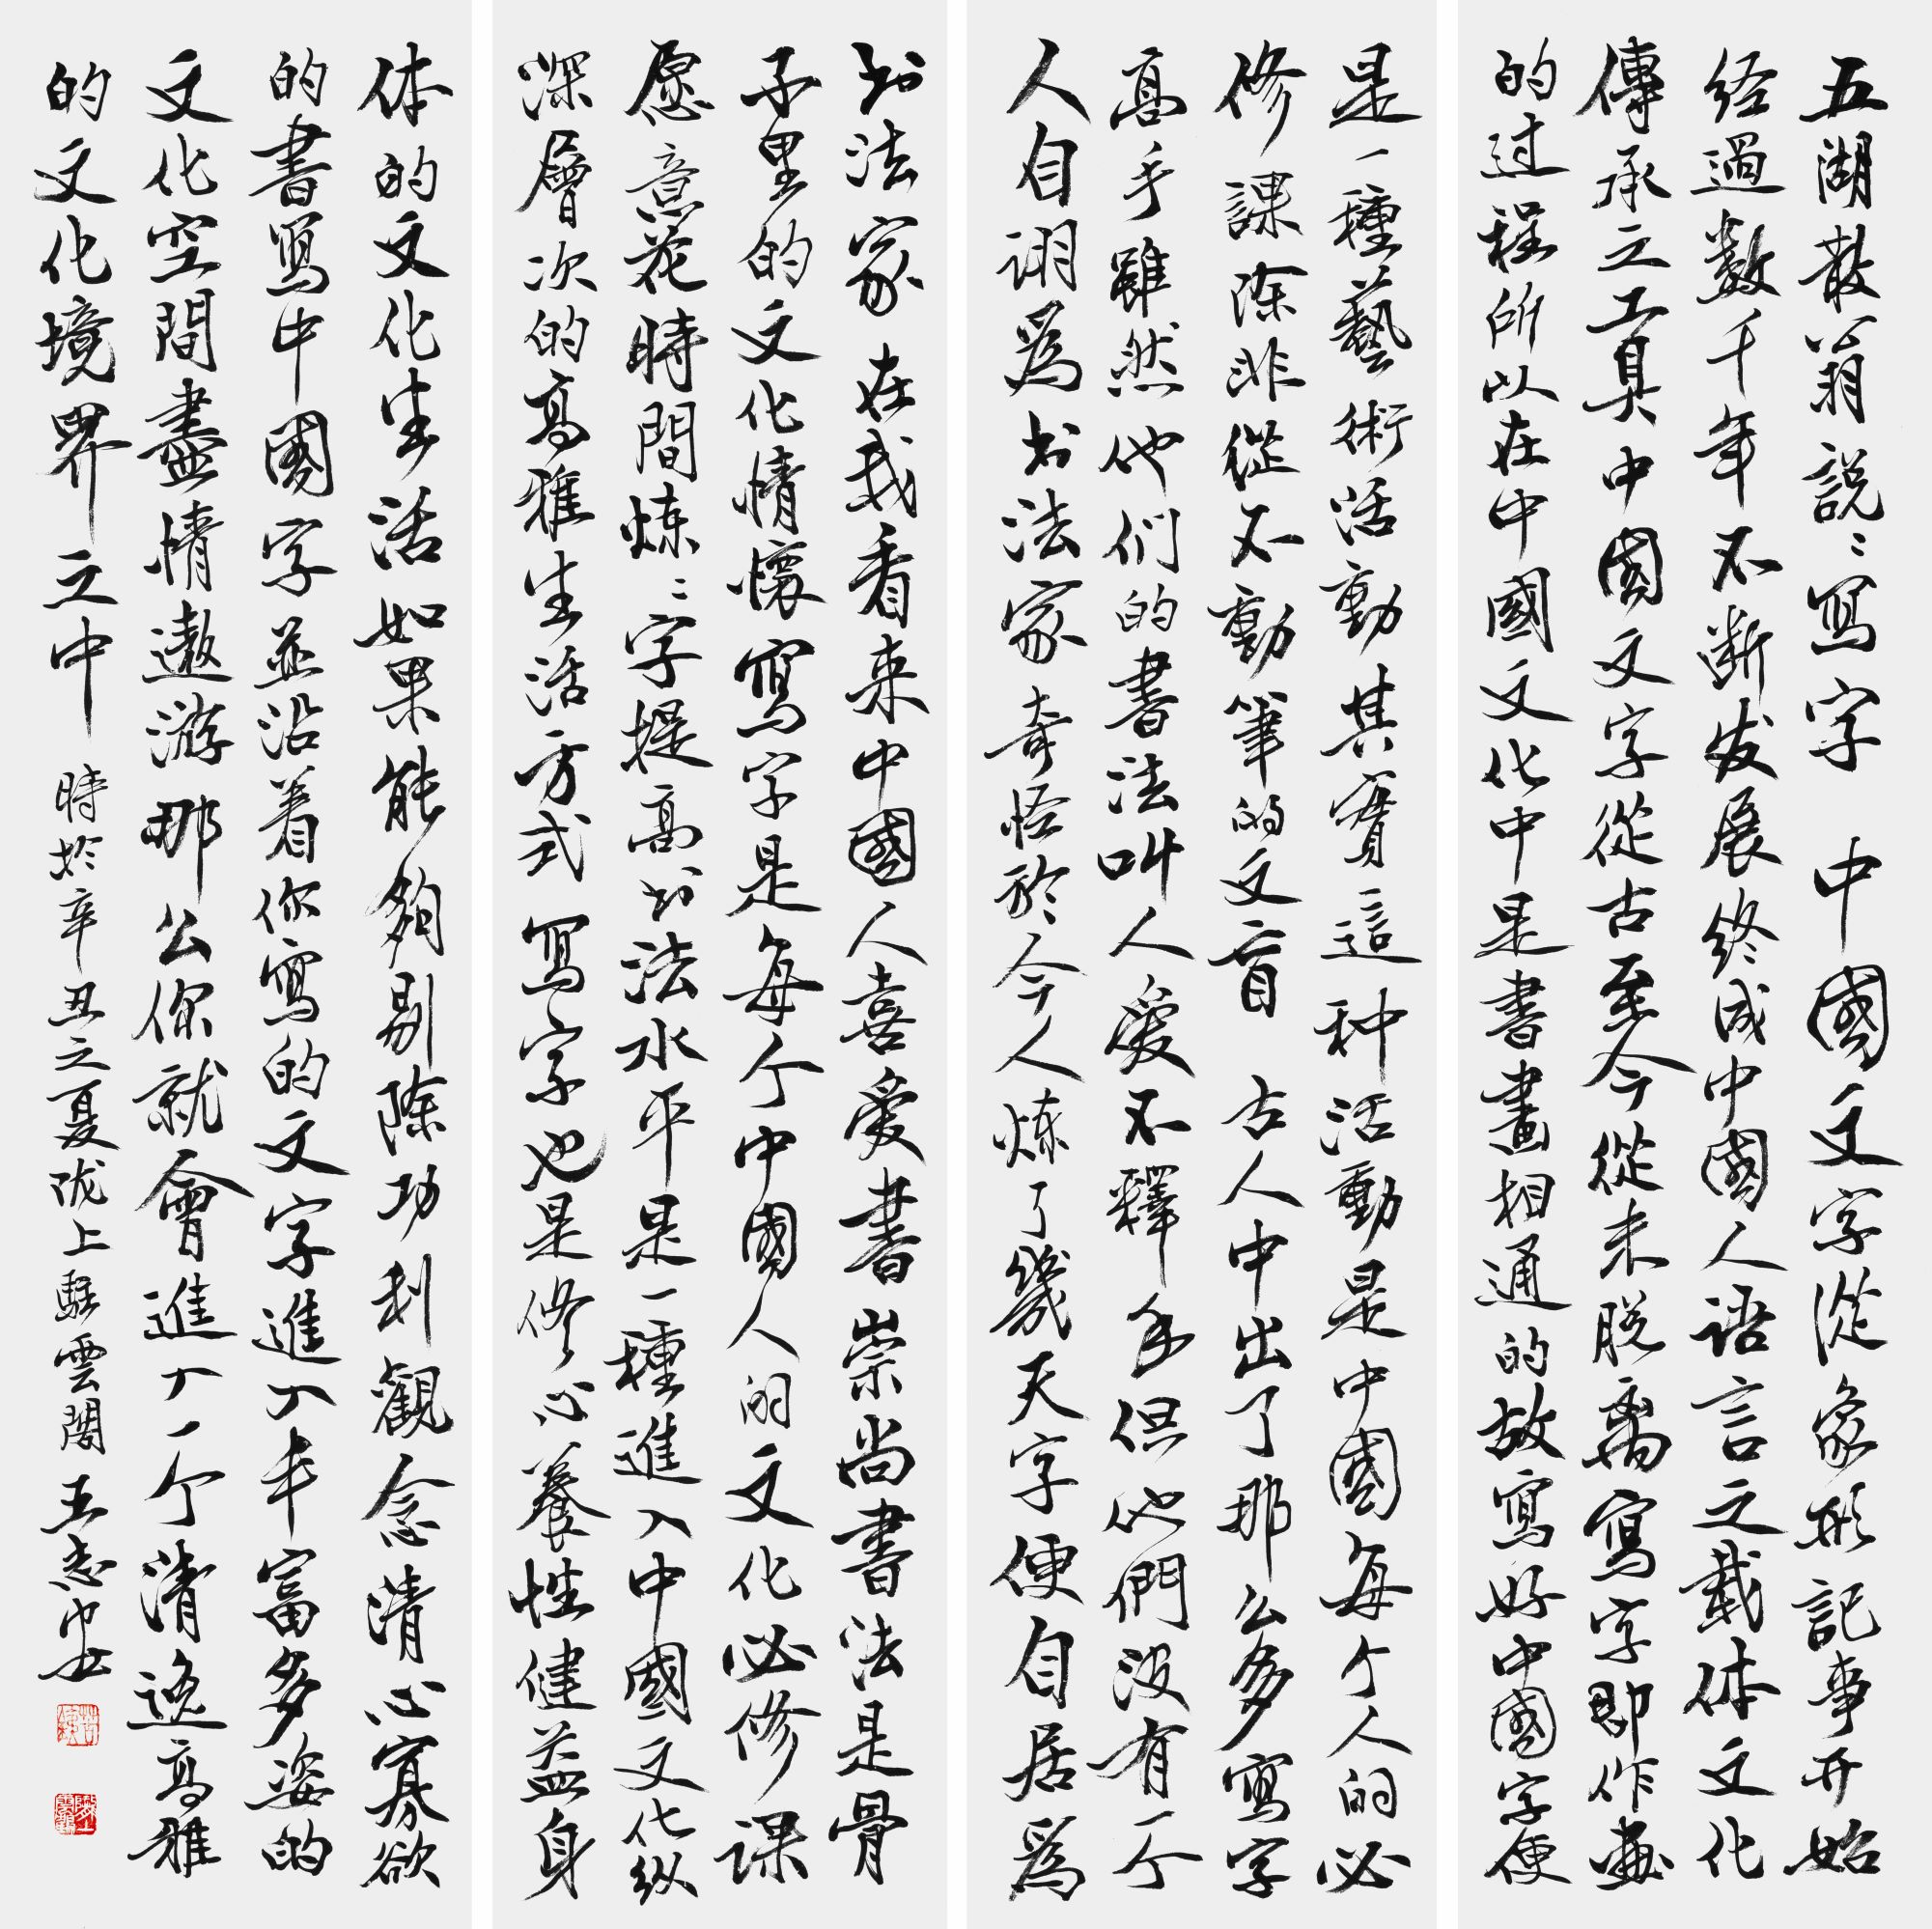 五湖散翁説〻寫字 中國文字從象形記事开始
经過数千年不断发展终成中國人语言之載体文化
傳承之工具中國文字從古至今從未脱离寫字即作畫
的过程所以在中國文化中是書畫相通的故寫好中國字便
是一種藝術活動其實這种活動是中國每个人的必
修課除非從不動筆的文盲 古人中出了那么多寫字
高手雖然他们的書法叫人愛不釋手但他們没有一个
人自诩爲书法家奇怪於今人炼了幾天字便自居爲
书法家在我看来中國人喜爱書崇尚書法是骨
子里的文化情懷寫字是每个中國人的文化必修课
愿意花時間炼〻字提高书法水平是一種進入中國文化纵
深層次的高雅生活方式寫字也是修心養性健益身
体的文化生活如果能夠剔除功利觀念清心寡欲
的書寫中國字並沿着你寫的文字進入丰富多姿的
文化空間盡情遨游那么你就會進入一个清逸高雅
的文化境界之中 時於辛丑之夏陇上騷雲閣王志安书